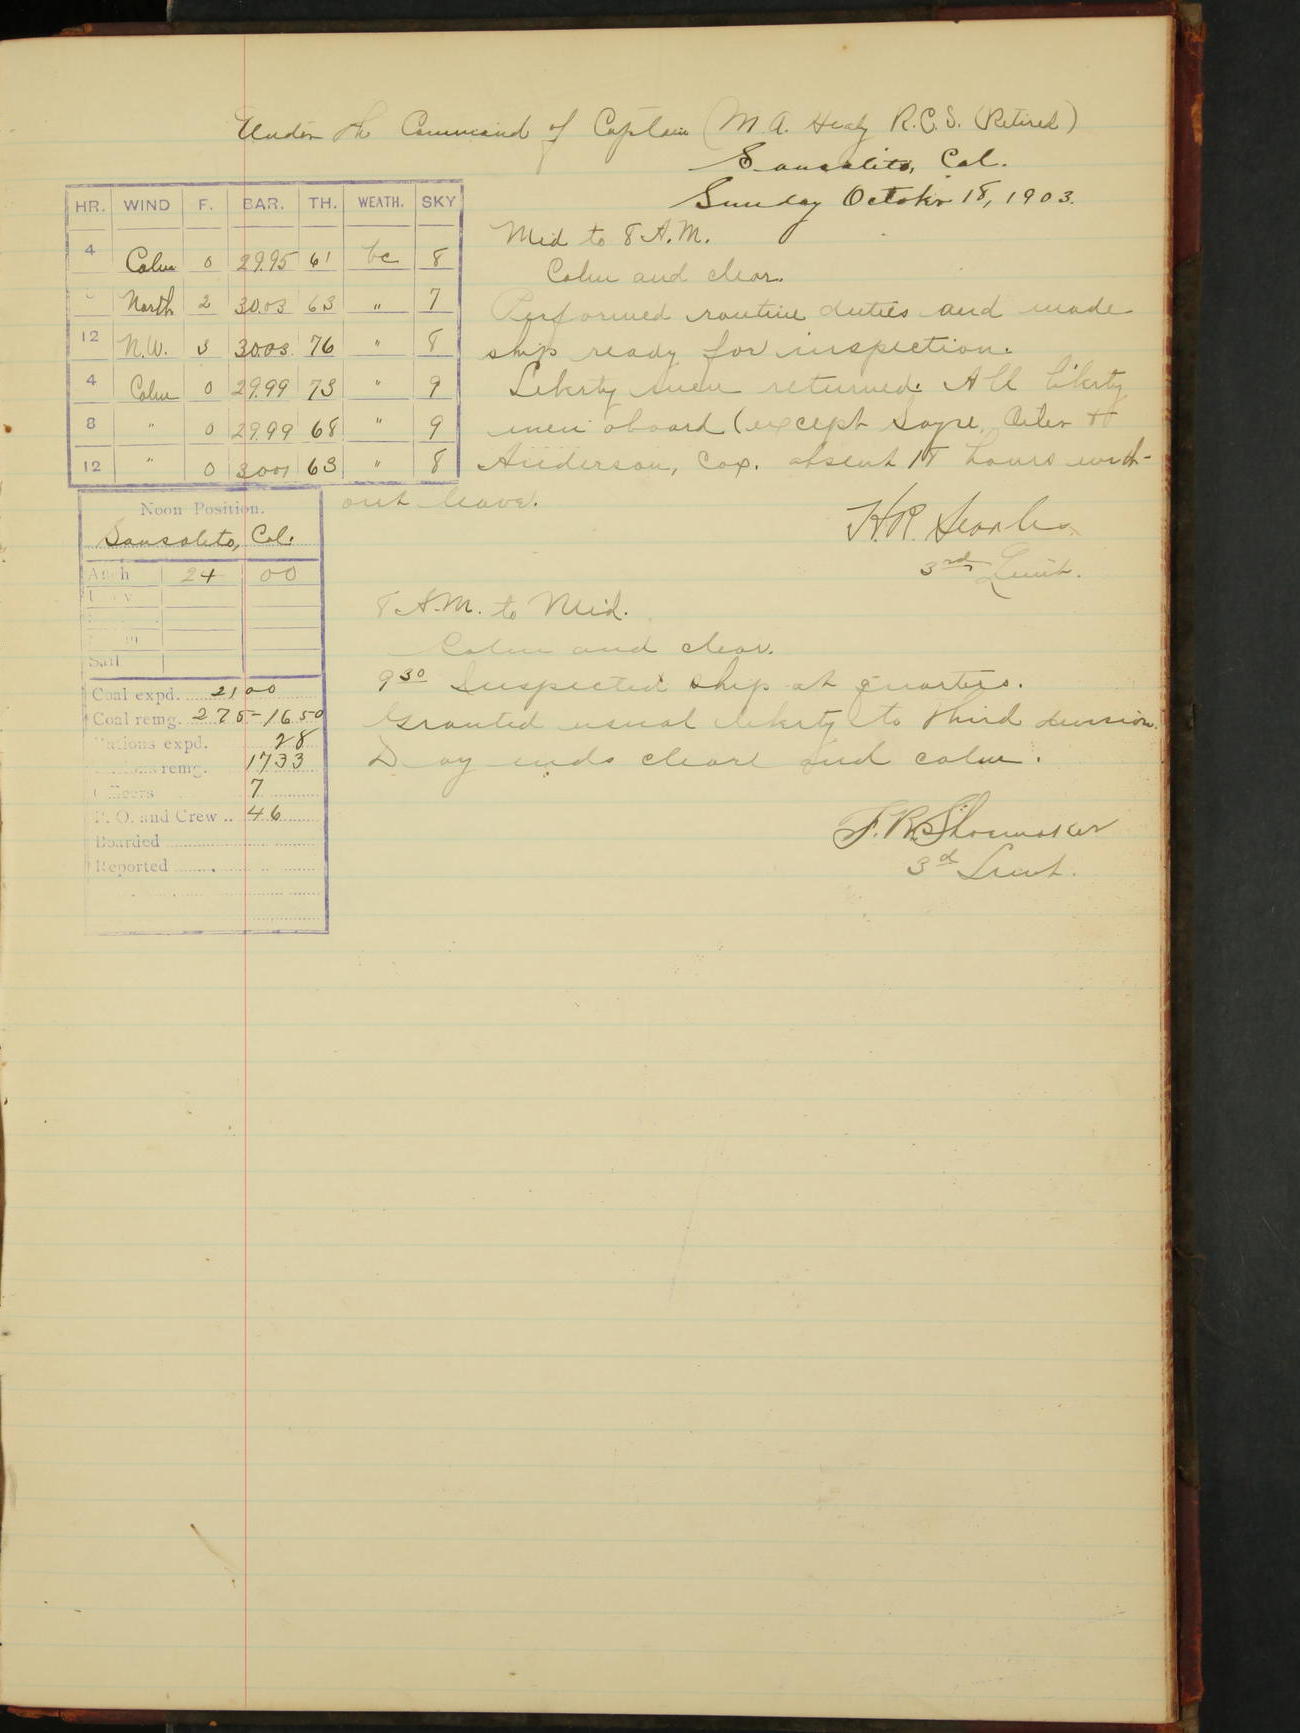 Under the Command of Captain (M. A. Healy R.C.S. (Retired)
Sausalito, Cal.
Sunday October 18, 1903.
HR. WIND F. BAR. TH. WEATH. SKY
4 Calm 0 29.95 61 bc 8
North 2 30.03 63 " 7
12 N.W. 3 30.03 76 " 8
4 Calm 0 29.99 73 " 9
8 " 0 29.99 68 " 9
12 " 0 30.01 63 " 8
Mid to 8 A.M.
Calm and clear.
Performed routine duties and made
ship ready for inspection.
Liberty men returned. All liberty
men aboard (except Sayre, &
Anderson, Cox. absent hours with-
out leave.
H.R. Searles
3rd Lieut.
Noon Position.
Sausalito, Cal.
Anch 24 00
Sail
Coal expd. 2100
Coal remg. 275-1650
Rations expd. 28
Rations remg. 1733
Officers 7
P. O. and Crew .. 46
Boarded
Reported
8 A.M. to Mid.
Calm and clear.
9 30 Inspected ship at quarters.
Granted usual liberty to third division.
Day ends clear and calm.
F. R. Shoemaker
3d Lieut.